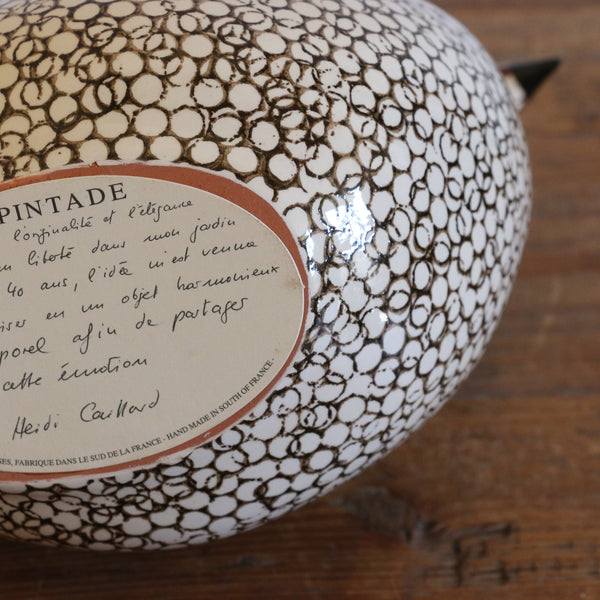 PINTADE
l'originalité et l'élégance
en liberté dans mon jardin
40 ans, l'idée m'est venue
iser en un objet harmonieux
porel afin de partager
cette émotion
Heidi Caillard
SES, FABRIQUE DANS LE SUD DE LA FRANCE - HAND MADE IN SOUTH OF FRANCE -